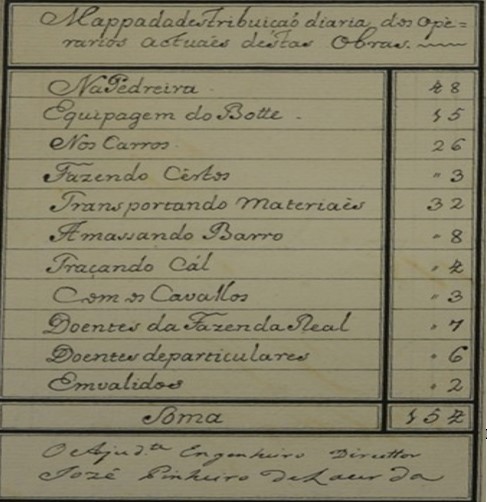 Mappadadestribuicaõ diaria dos Ope=
rarios actuaẽs destas Obras.
NaPedreira. 48
Equipagem do Botte. 15
Nos Carros. 26
Fazendo Cêstos " 3
Transportando Materiaẽs 32
Amassando Barro " 8
Traçando Cál " 4
Com os Cavallos " 3
Doentes daFazendaReal " 7
Doentes departiculares " 6
Emvalidos " 2
Soma 154
O Ajud.te Engenheiro Direttor
Jozé Pinheiro deLacerda